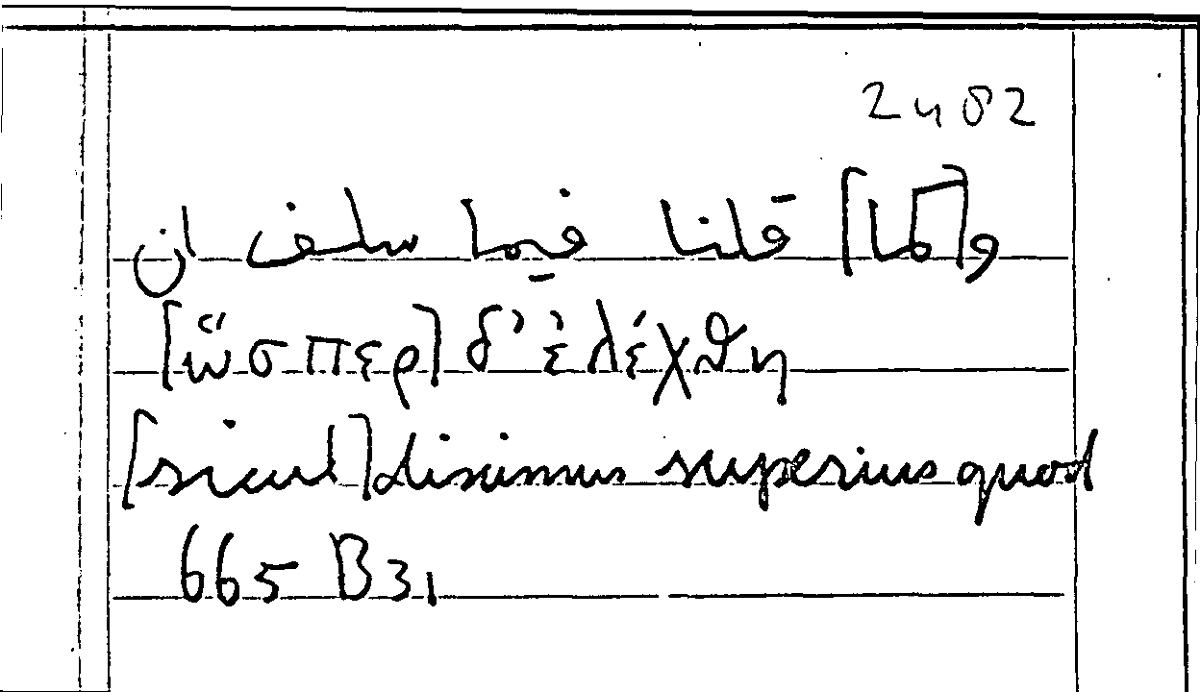 2402
و[كما] قلنا فيما سلف ان
[ὥσπερ] δ' ἐλέχθη
[sicut] diximus superius quod
665 B31